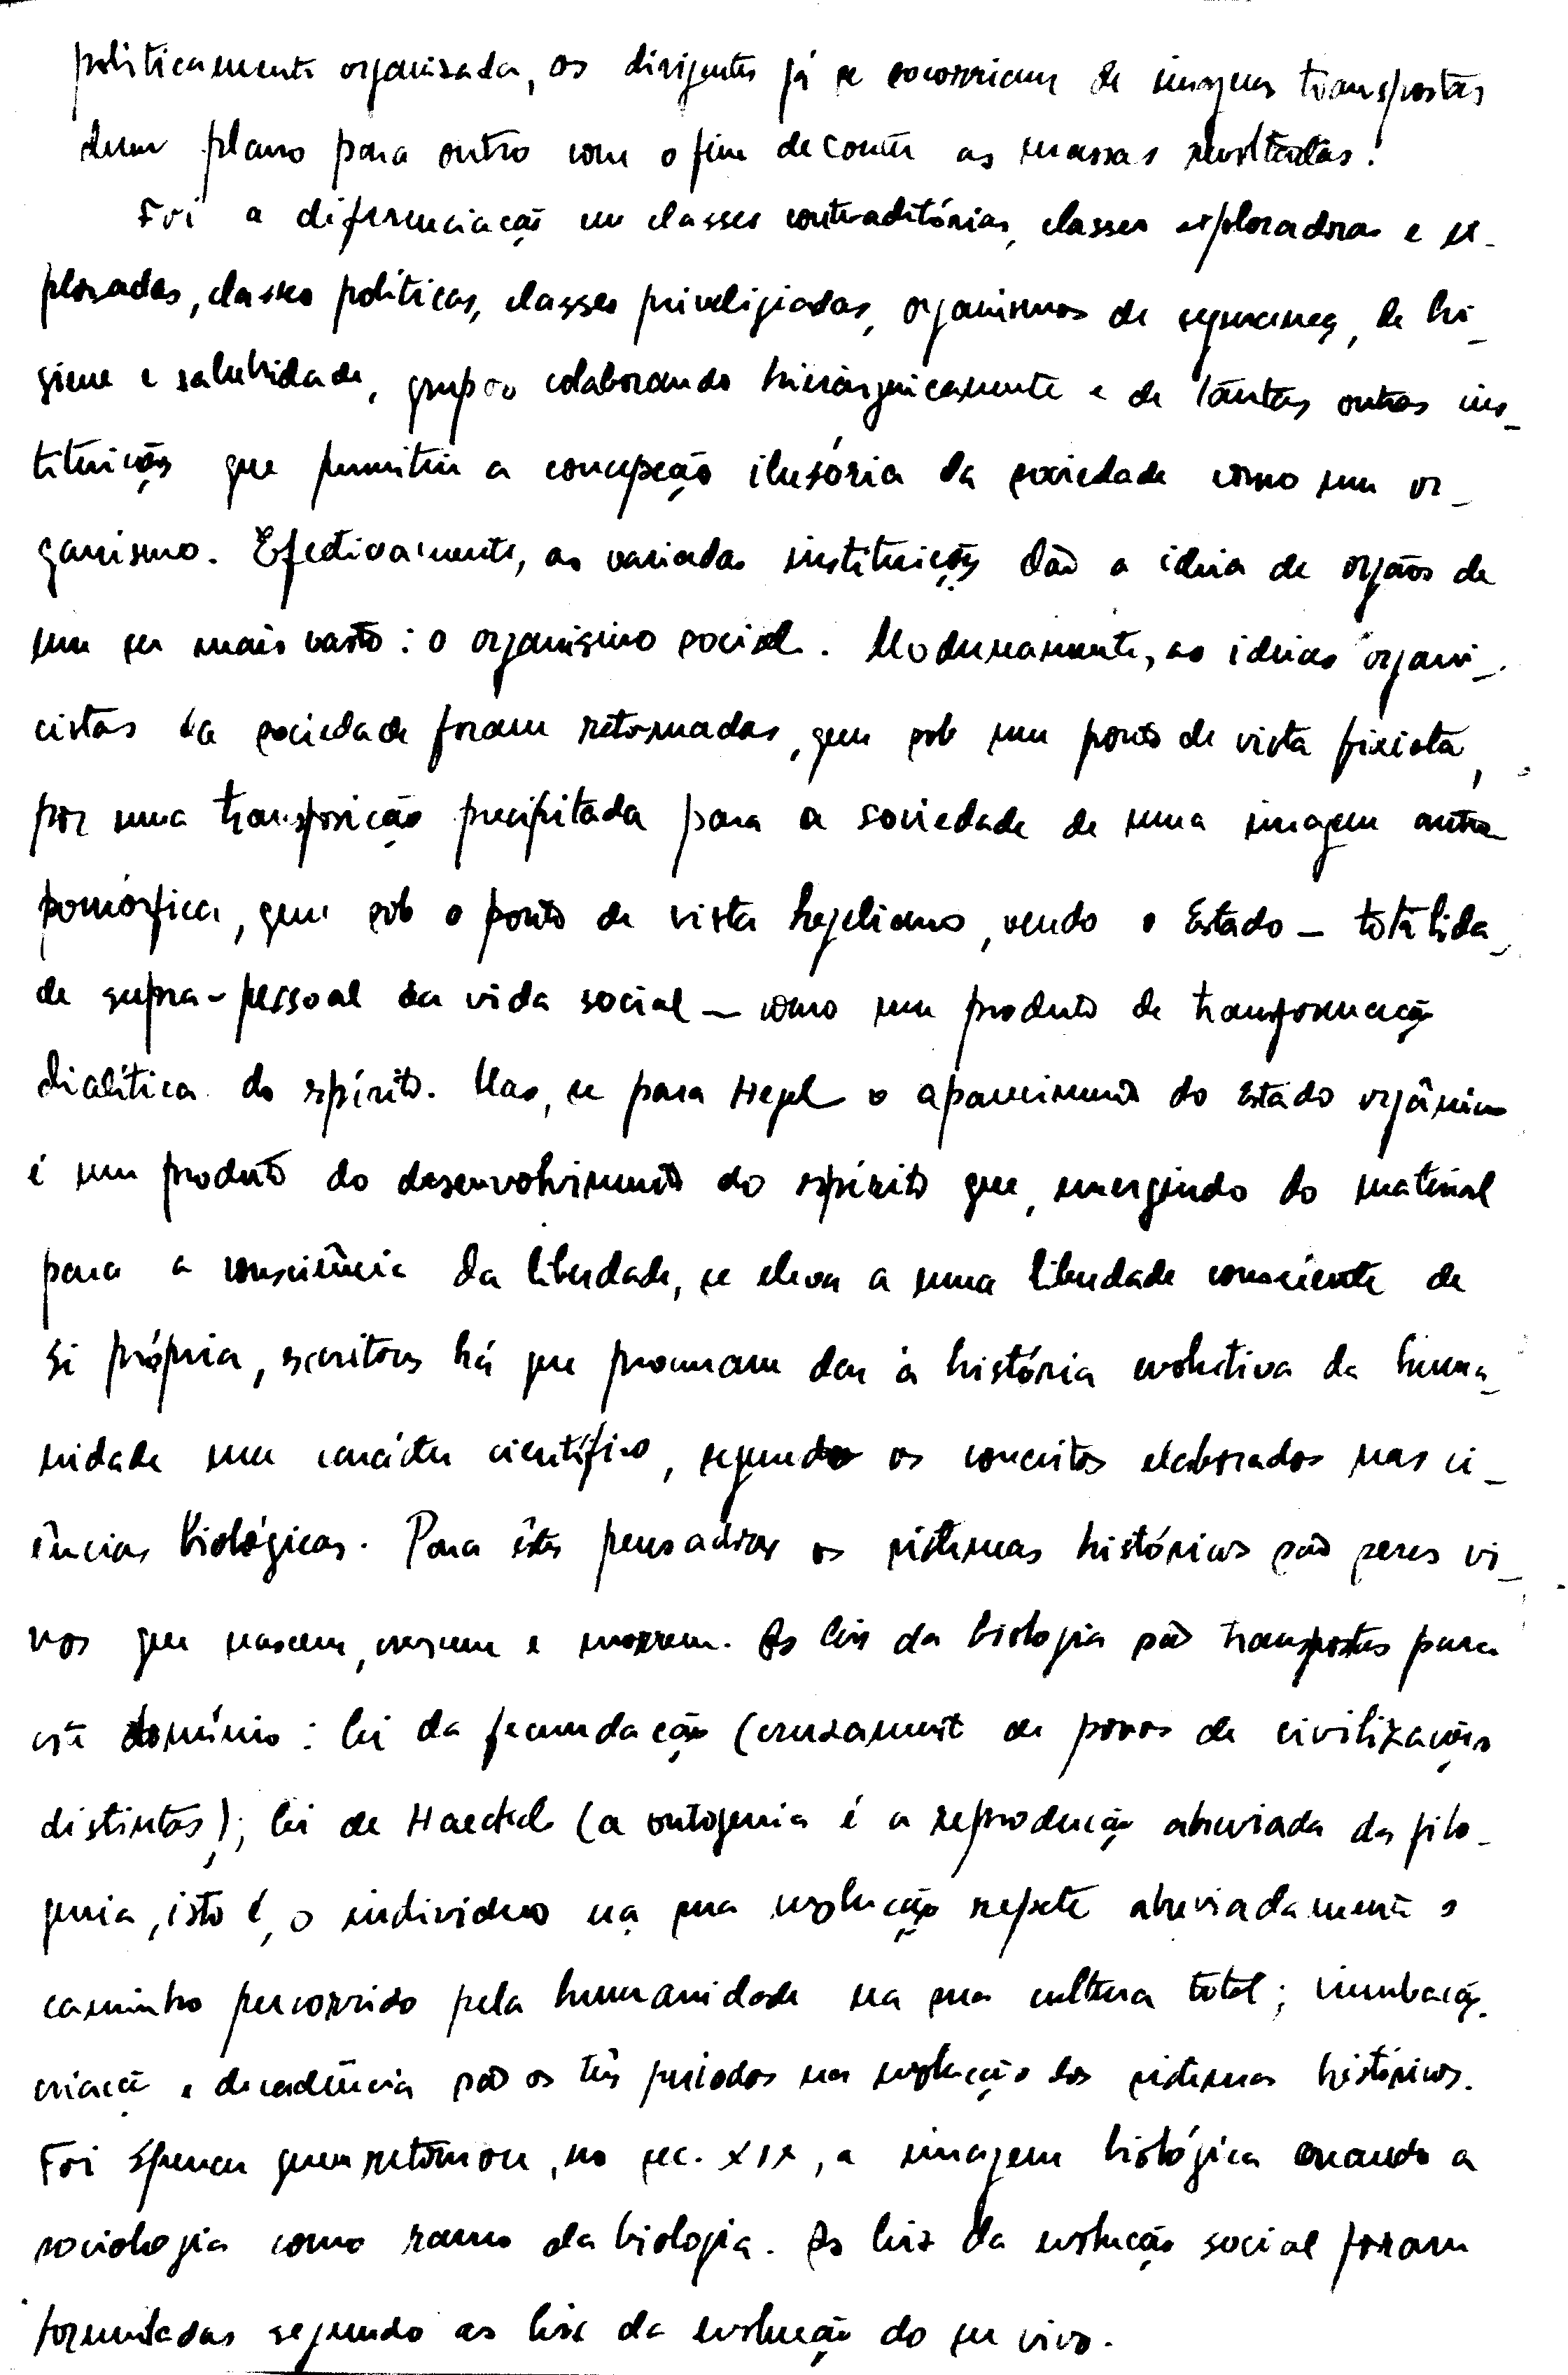 politicamente organizada, os dirigentes já se socorriam de imagens transpostas
dum plano para outro com o fim de conter as massas revoltadas!
Foi a diferenciação em classes contraditórias, classes exploradoras e ex-
ploradas, classes políticas, classes priveligiadas, organismos de segurança, de hi-
giene e salubridade, grupos colaborando hieràrquicamente e de tantas outras ins-
tituições que permitiu a concepção ilusória da sociedade como um or-
ganismo. Efectivamente, as variadas instituições dão a ideia de orgãos de
um ser mais vasto: o organismo social. Modernamente, as ideias organi-
cistas da sociedade foram retomadas, quer sob um ponto de vista fixista,
por uma transposição precipitada para a sociedade de uma imagem antro-
pomórfica, quer sob o ponto de vista hegeliano, vendo o Estado — totalida-
de supra-pessoal da vida social — como um produto de transformação
dialética do espírito. Mas, se para Hegel o aparecimento do Estado orgânico
é um produto do desenvolvimento do espírito que, emergindo do material
para a consciência da liberdade, se eleva a uma liberdade consciente de
si própria, escritores há que procuram dar à história evolutiva da huma-
nidade um carácter científico, segundo os conceitos elaborados nas ci-
ências biológicas. Para êstes pensadores os sistemas históricos são seres vi-
vos que nascem, crescem e morrem. As leis da biologia são transpostas para
este domínio: lei da fecundação (cruzament de povos de civilizações
distintas); lei de Haeckel (a ontogenia é a reprodução abreviada da filo-
genia, isto é, o individuo na sua evolução repete abreviadamente o
caminho percorrido pela humanidade na sua cultura total; incubação,
criação e decadência são os três periodos na evolução dos sistemas históricos.
Foi Spencer quem retomou, no sec. XIX, a imagem biológica criando a
sociologia como ramo da biologia. As leis da evolução social foram
formuladas segundo as leis da evolução do ser vivo.